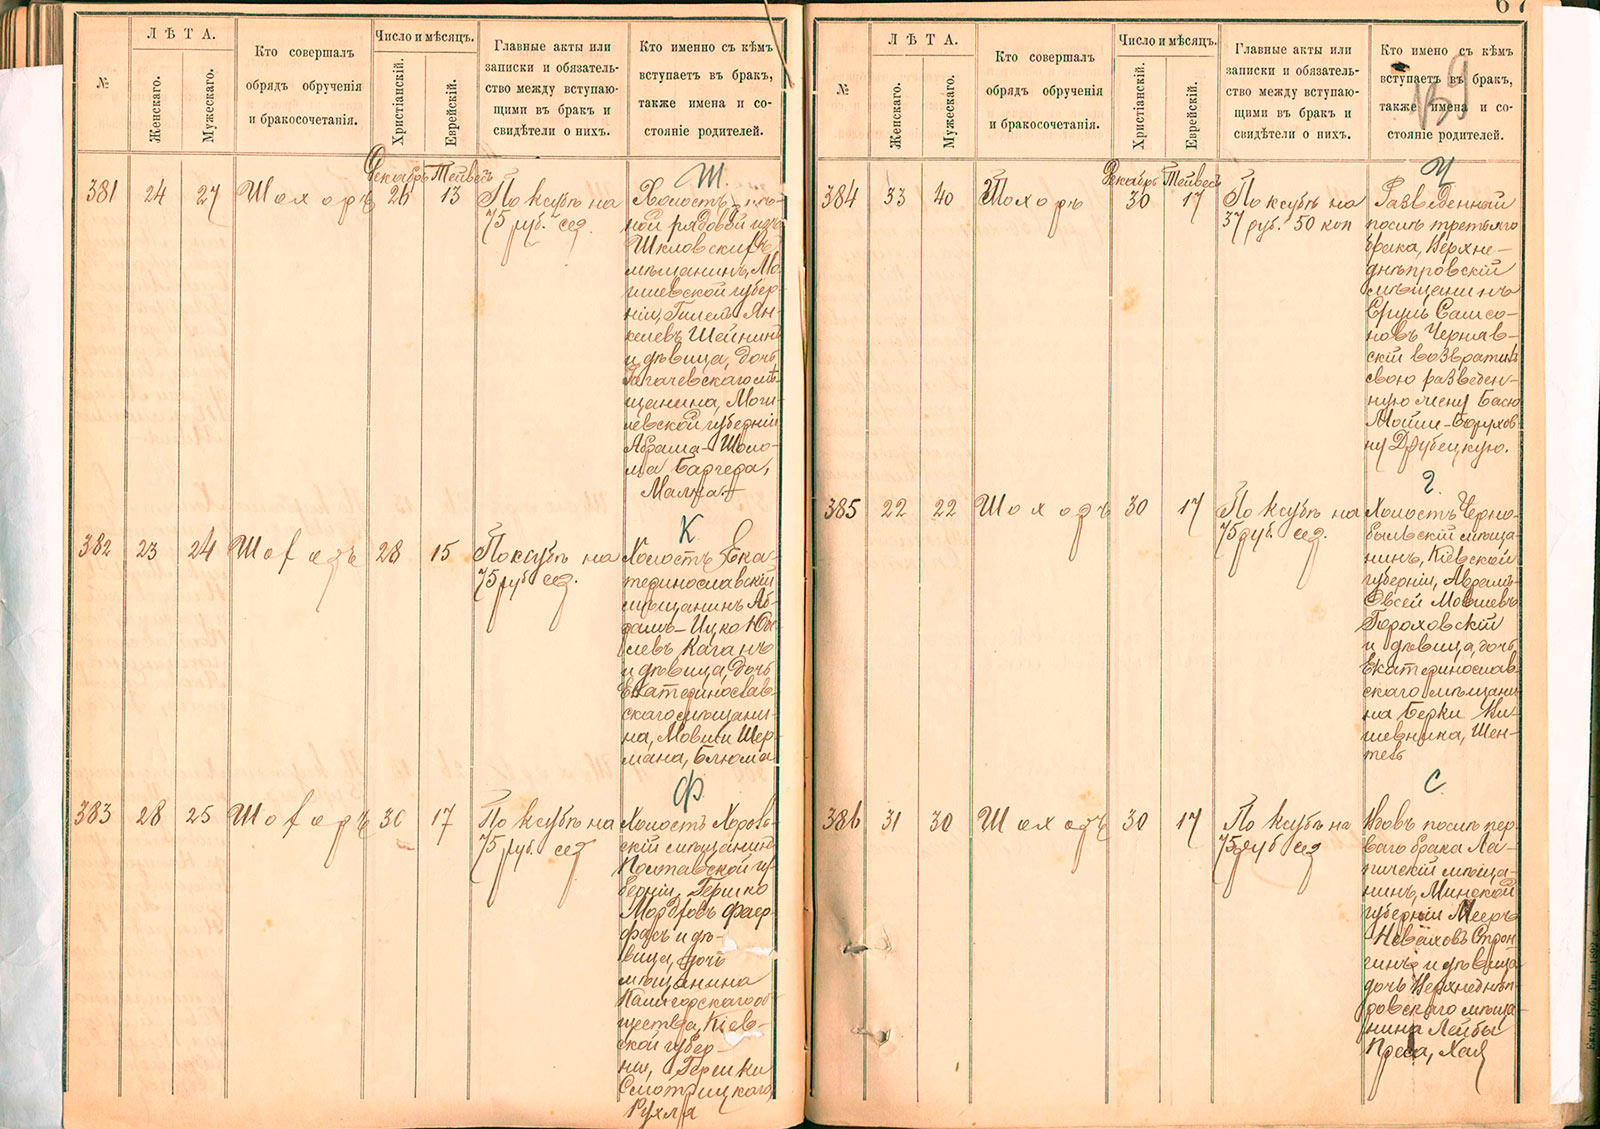 67
139
№
ЛѢТА.
Женскаго.
Мужескаго.
Кто совершалъ
обрядъ обрученія
и бракосочетанія.
Число и мѣсяцъ.
Христіанскій.
Еврейскій.
Главные акты или
записки и обязатель-
ство между вступаю-
щими въ бракъ и
свидѣтели о нихъ.
Кто именно съ кѣмъ
вступаетъ въ бракъ,
также имена и со-
стояніе родителей.
Декабрь Тейвесъ
381 24 27 Шохоръ 26 13
По ксубѣ на
75 руб. сер.
Ш.
Холостъ
ной рядовой изъ
Шкловскихъ
мѣщанинъ, Мо-
гилевской губер-
ніи, Гилелъ Ян-
келевъ Шейнинъ
и дѣвица, дочь
Рагачевскаго мѣ-
щанина, Моги-
левской губерніи
Абрама-Шоло-
ма Баргера,
Малка.
382 23 24 Шохоръ 28 15
По ксубѣ на
75 руб. сер.
К
Холостъ Ека-
теринославскій
мѣщанинъ Аб-
рамъ-Ицко Юд-
левъ Каганъ
и дѣвица, дочь
Екатеринослав-
скаго мѣщани-
на, Мовши Шер-
мана, Блюма
383 28 25 Шохоръ 30 17
По ксубѣ на
75 руб. сер.
Ф.
Холостъ Хороль-
скій мѣщанинъ
Полтавской гу-
берніи, Гершко
Мордковъ Фаер-
фасъ и дѣ-
вица, дочь
мѣщанина
Кашгорскаго об-
щества, Кіев-
ской губер-
ніи, Гершки
Смотрицкаго,
Рухля
№
ЛѢТА.
Женскаго.
Мужескаго.
Кто совершалъ
обрядъ обрученія
и бракосочетанія.
Число и мѣсяцъ.
Христіанскій.
Еврейскій.
Главные акты или
записки и обязатель-
ство между вступаю-
щими въ бракъ и
свидѣтели о нихъ.
Кто имено съ кѣмъ
вступаетъ въ бракъ,
также имена и со-
стояніе родителей.
Декабрь Тейвесъ
384 33 40 Шохоръ 30 17
По ксубѣ на
37 руб. 50 коп
Ч
Разведенный
послѣ третьяго
брака, Верхне-
днѣпровскій
мѣщанинъ
Сруль Самсо-
новъ Черняв-
скій возвратилъ
свою разведен-
ную жену Басю
Мойши-Борухов-
ну Дубецкую.
385 22 22 Шохоръ 30 17
По ксубѣ на
75 руб. сер.
Г.
Холостъ Черно-
быльскій мѣща-
нинъ, Кіевской
губерніи, Абрамъ-
Овсей Мовшевъ
Гороховскій
и дѣвица, дочь
Екатеринослав-
скаго мѣщани-
на Берки Ки-
шевника, Шен-
тель
386 31 30 Шохоръ 30 17
По ксубѣ на
75 руб сер
С.
Вдовъ послѣ пер-
ваго брака Ла-
пичскій мѣща-
нинъ, Минской
губерніи Мееръ
Неваховъ Строн-
гинъ и дѣвица
дочь Верхнеднѣп-
ровскаго мѣща-
нина Лейбы
Преса, Хая
Екат. Губ. Тип. 1892 г.